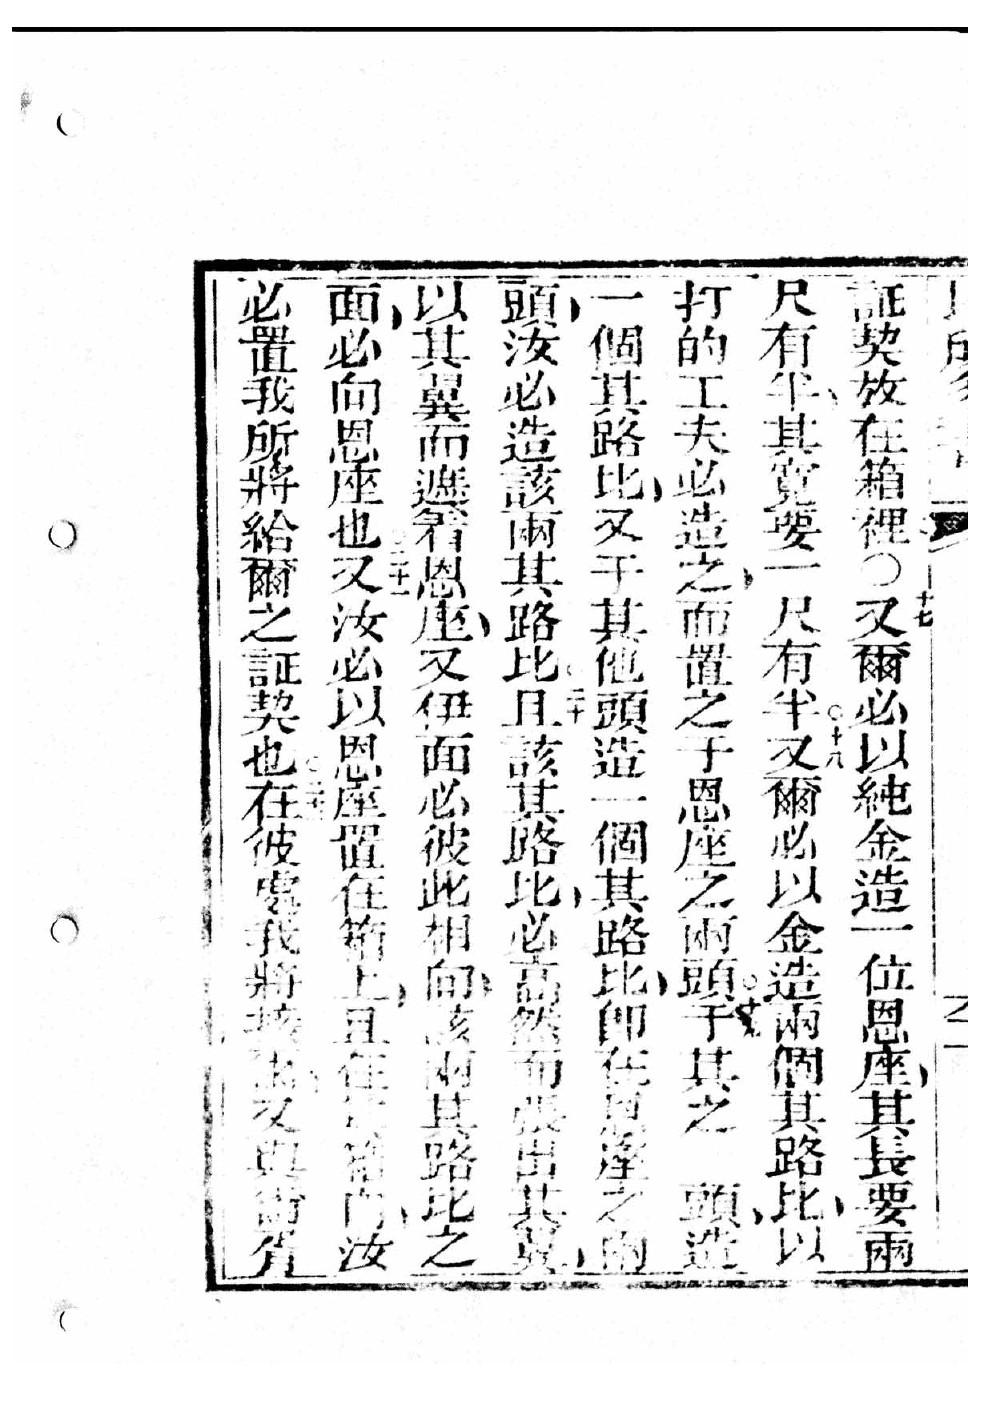 証契放在箱裡〇十七又爾必以純金造一位恩座其長要兩
尺有半其寬要一尺有半〇十八又爾必以金造兩個其路比以
打的工夫必造之而置之于恩座之兩頭〇十九于其之一頭造
一個其路比又于其他頭造一個其路比即在恩座之兩
頭汝必造該兩其路比〇二十且該其路比必高然而張出其翼
以其翼而遮着恩座又伊面必彼此相向該兩其路比之
面必向恩座也〇二十一又汝必以恩座置在箱上且在箱內汝
必置我所將給爾之証契也〇二十二在彼處我將接出又與